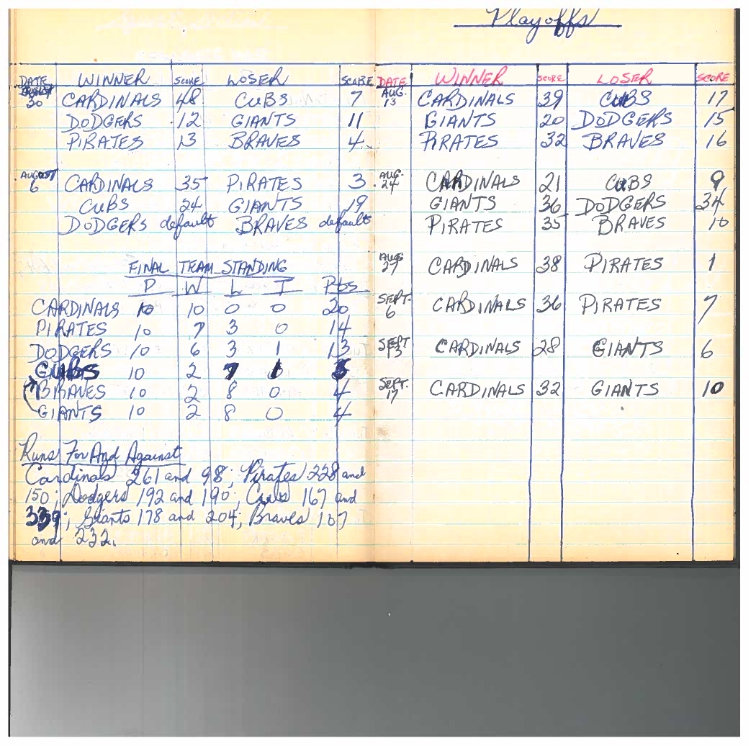 Playoffs
DATE WINNER SCORE LOSER SCORE
30 CARDINALS 48 CUBS 7
DODGERS 12 GIANTS 11
PIRATES 13 BRAVES 4
AUGUST 6 CARDINALS 35 PIRATES 3
CUBS 24 GIANTS 19
DODGERS default BRAVES default
FINAL TEAM STANDING
P W L T Pts
CARDINALS 10 10 0 0 20
PIRATES 10 7 3 0 14
DODGERS 10 6 3 1 13
CUBS 10 2 7 1 5
BRAVES 10 2 8 0 4
GIANTS 10 2 8 0 4
Runs For And Against
Cardinals 261 and 98; Pirates 228 and
150; Dodgers 192 and 190; Cubs 167 and
339; Giants 178 and 204; Braves 107
and 232.
DATE WINNER SCORE LOSER SCORE
AUG 13 CARDINALS 39 CUBS 17
GIANTS 20 DODGERS 15
PIRATES 32 BRAVES 16
AUG. 24 CARDINALS 21 CUBS 9
GIANTS 36 DODGERS 34
PIRATES 35 BRAVES 10
AUG 27 CARDINALS 38 PIRATES 1
SEPT. 6 CARDINALS 36 PIRATES 7
SEPT 13 CARDINALS 28 GIANTS 6
SEPT. 17 CARDINALS 32 GIANTS 10